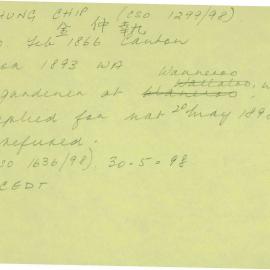 HUNG CHIP (CSO 1299/98)
金 仲 執
Feb 1866 Canton
1893 WA
Wanneroo
gardener at
applied for nat 20 May 189
refused.
SO 1636/98). 30-5-98
CEDT.